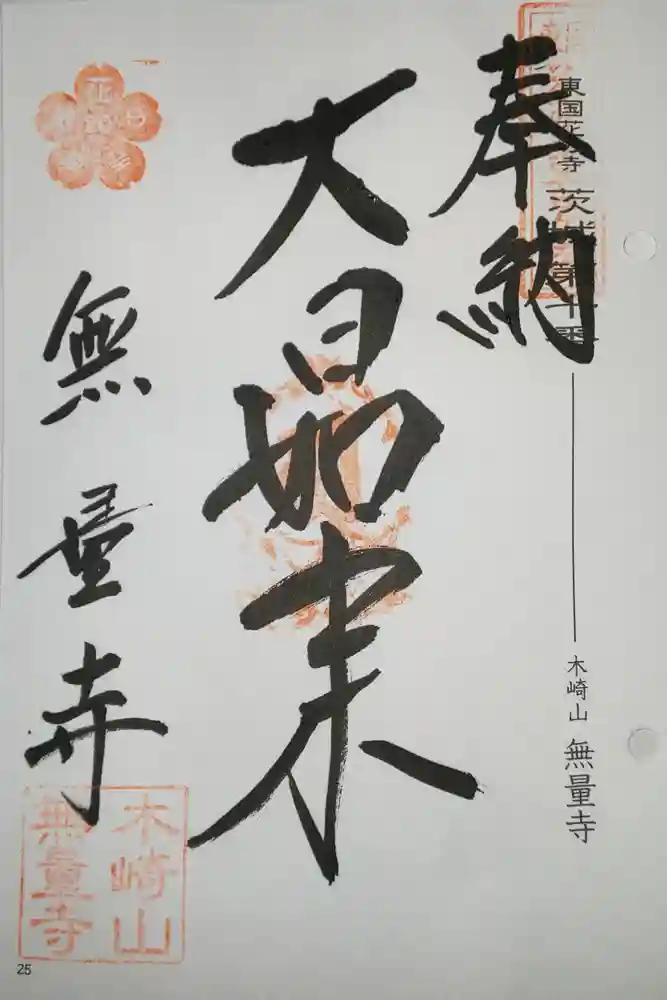 東国花の寺 茨城第十番
木崎山 無量寺
奉納
大日如来
無量寺
木崎山
無量寺
25